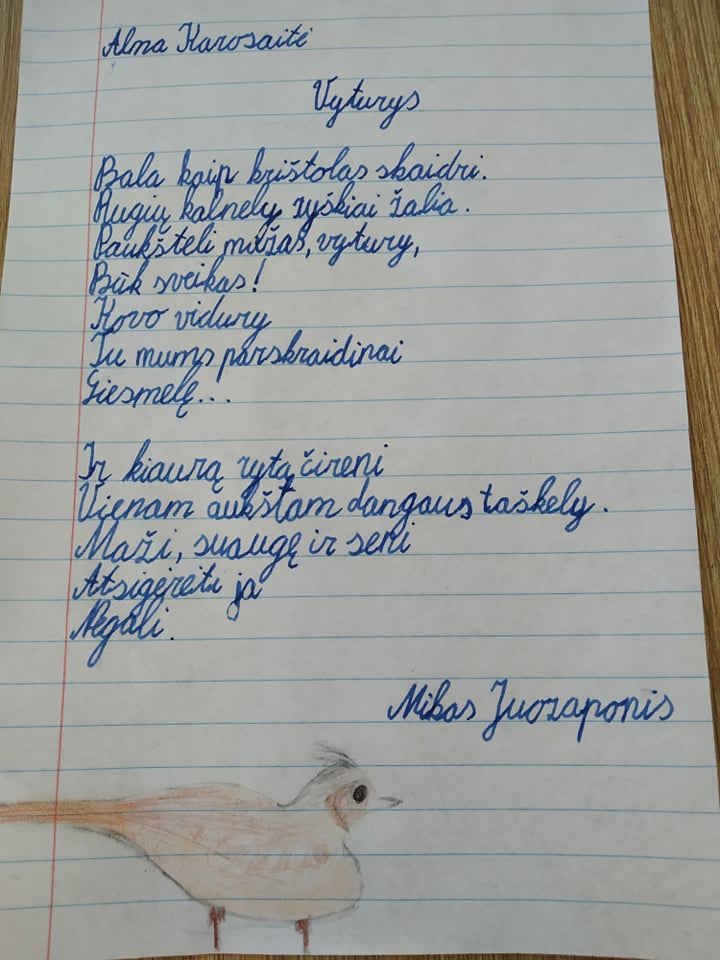 Alma Karosaitė
Vyturys
Bala kaip krištolas skaidri.
Rugių kalnely ryškiai žalia.
Paukšteli mažas, vytury,
Būk sveikas!
Kovo vidury
Tu mums parskraidinai
Giesmelę...
Ir kiaurą rytą čireni
Vienam aukštam dangaus taškely.
Maži, suaugę ir seni
Atsigėrėti ja
Negali.
Mikas Juozaponis